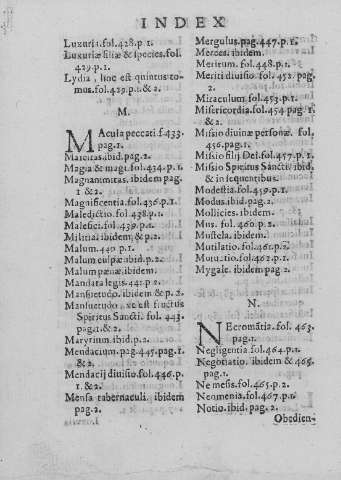 INDEX
Luxuria.fol.428.p.1.
Luxuriæ filiæ & species.fol.
429.p.1.
Lydia, hoc est quintus to-
mus.fol.429.p.1.& 2.
M.
MAcula peccati f.433.
pag.1.
ibid.pag.2.
Magia & magi.fol.434.p.1.
Magnanimitas. ibidem pag.
1 & 2.
Magnificentia.fol.436.p.1.
Maledictio.fol.438.p.1.
Malefici.fol.439.p.1.
Militia. ibidem & p.2.
Malum.440 p.1.
Malum culpæ ibid.p.2.
Malum pænæ.ibidem.
Mandata legis.441 p.2
Mansuetudo. ibidem & p.2.
Mansuetudo est fructus
Spiritus Sancti. fol. 443.
pag.1.& 2.
Martyrium.ibid.p.2.
Mendacium.pag.445.pag.1.
& 2.
Mendacij diuisio.fol.446.p.
1.& 2.
Mensa tabernaculi. ibidem
pag.2.
Mergulus.pag.447.p.1.
Merces. ibidem.
Meritum. fol.448.p.1.
Meriti diuisio fol. 452. pag.
2.
Miraculum fol.453.p.1.
Misericordia.fol.454 pag.1.
& 2.
Missio diuinæ personæ. fol.
456.pag.1.
Missio filij Dei.fol.457.p.1.
Missio Spiritus Sancti ibid.
& in sequentibus.
Modestia.fol.459.p.1.
Modus.ibid.pag.2.
Mollicies. ibidem.
Mus. fol. 460 p.2.
Mustela. ibidem.
Mutilatio.fol.461.p.2.
fol.462.p.1.
Mygale. ibidem pag 2.
N.
NEcromātia.fol. 463.
pag.1.
Negligentia fol.464.p.1.
Negotiatio. ibidem & 465.
pag.1.
Nemesis.fol.465.p.2.
Neomenia.fol.467.p.1.
Notio.ibid.pag.2.
Obedien-